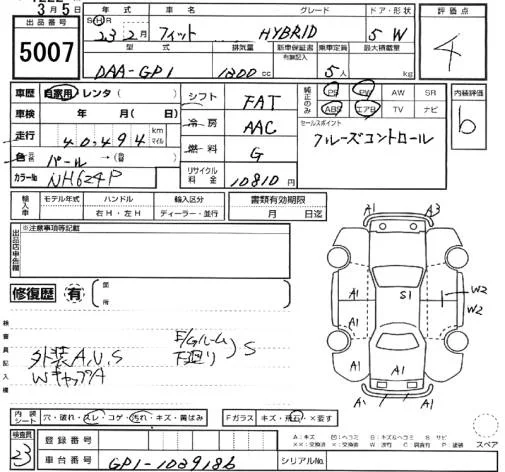 3月5
年式 車名 グレード ドア・形状 評価点
出品番号 5007
S H R 23 2月 フィット HYBRID 5 W 4
型式 排気量 新車保証書 乗車定員 最大積載量
有無記入
DAA-GP1 1300 cc 5人 kg
車歴 自家用 レンタ ( )
シフト FAT
純正のみ PS PW AW SR
ABS エアB TV ナビ
内装評価 b
車検 年 月(日)
冷房 AAC
セールスポイント
クルーズコントロール
走行 40,494 km マイル
燃料 G
色 パール →(替 )
カラーNo NH624P
リサイクル料金 10810円
輸入車 モデル年式 ハンドル 輸入区分
右H・左H ディーラー・並行
書類有効期限
月 日迄
出品店申告欄 ※注意事項等記載
修復歴 有 箇所
検査員記入欄
外装A,U,S
WキャップA
E/Gルーム
下廻り ) S
A1 A3
A1 A1
A1 S1 W2
W2
A1
A1 A1
A1
内装シート 穴・破れ・スレ・コゲ・汚れ・キズ・黄ばみ
Fガラス キズ・飛石・×要す
検査員 23
登録番号
車台番号 GP1-1029186
シリアルNo.
スペア
A:キズ